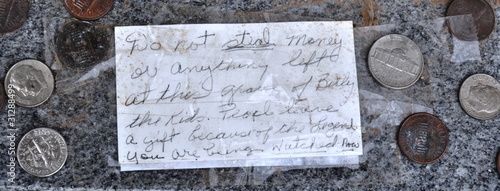 Do not steal money
or anything left
at this grave of Billy
the Kids. Peopl leave
a gift because of the Legend
You are being Watched Now
31288499
Adobe Stock